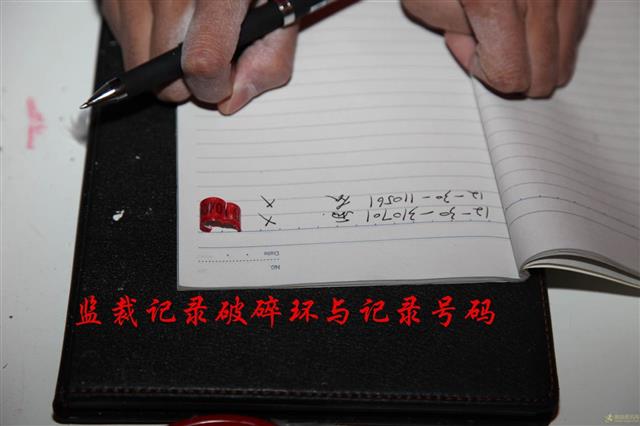 NO.
Date
12-30-310701 X
12-30-110561 X
监裁记录破碎环与记录号码